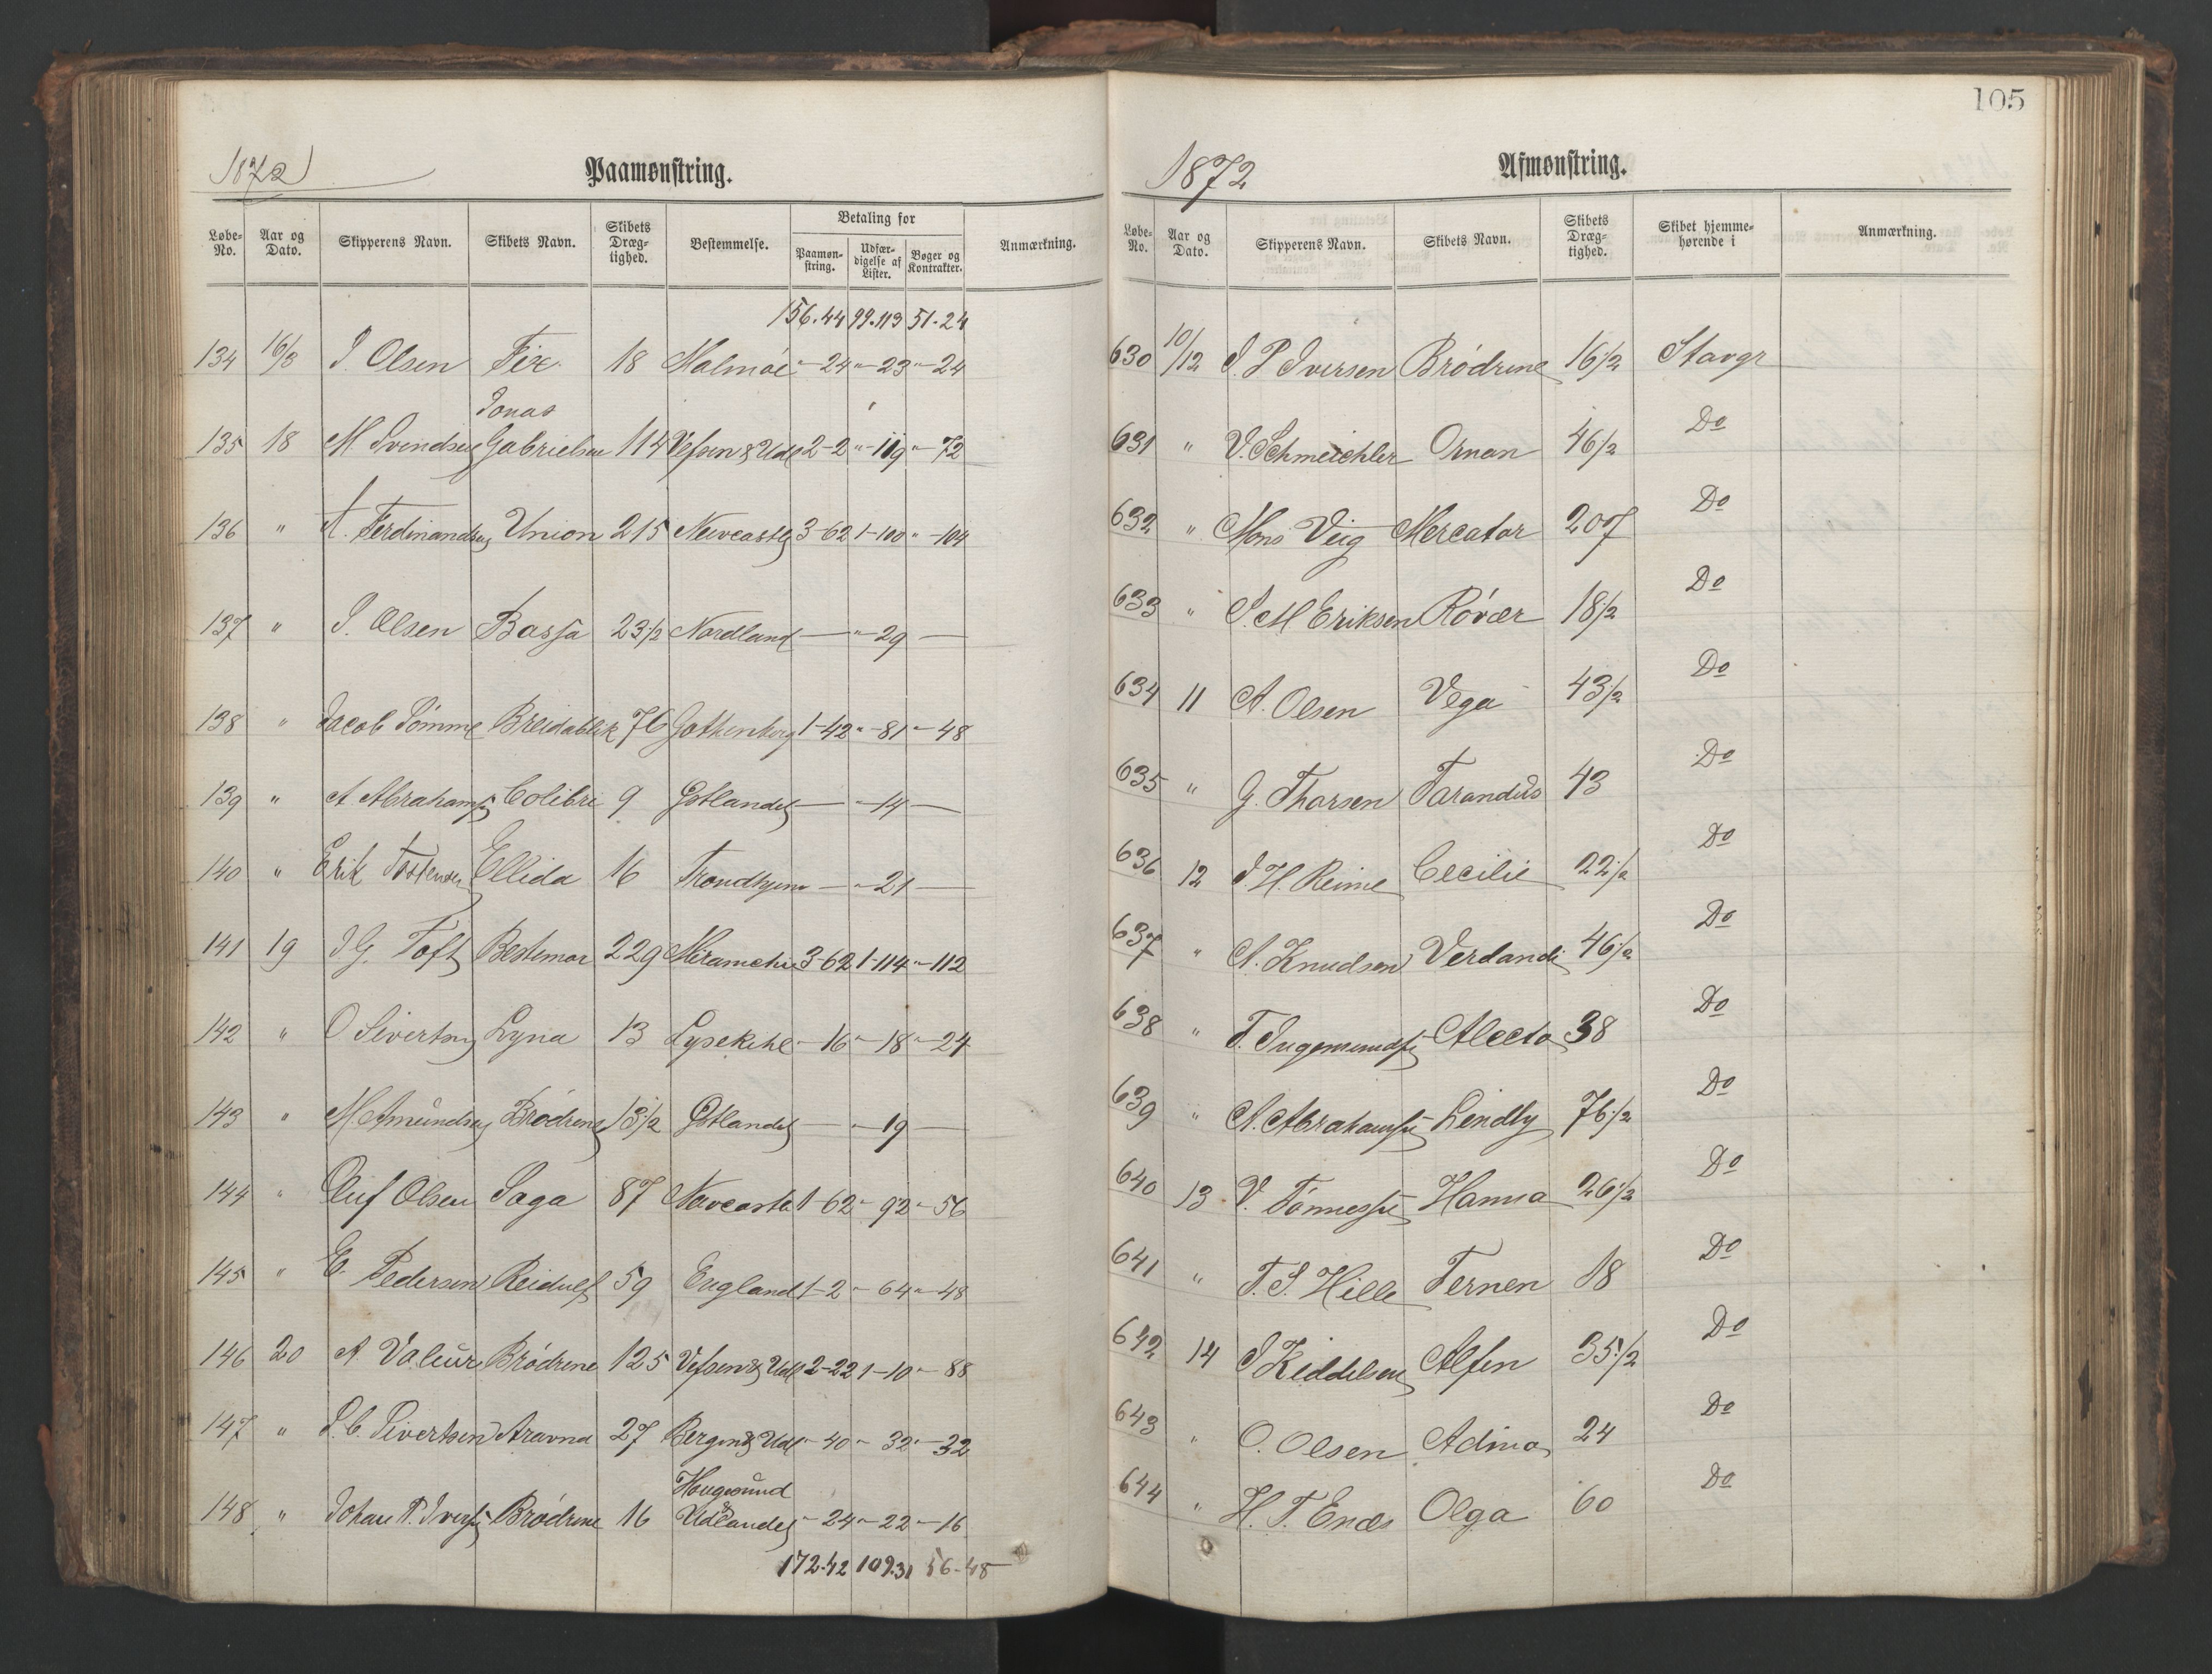 1872
Paamønstring.
Løbe-No. Aar og Dato. Skipperens Navn. Skibets Navn. Skibets Dræg-tighed. Bestemmelse. Betaling for Paamøn-string. Udfær-digelse af Lister. Bøger og Kontrakter. Anmærkning.
156.44 99.113 51.24
134 16/3 J. Olsen Fix 18 Malmøe "-24 "-23 "-24
Jonas
135 18 M. Svendsen Gabrielsen 114 Vefsen & Udl 2-2 "-119 "-72
136 " A. Ferdinandsen Union 215 Newcastle 3-62 1-100 "-104
137 " J. Olsen Bassa 23 1/2 Nordland — "-29 —
138 " Jacob Tömme Breidablik 76 Gothenborg 1-42 "-81 "-48
139 " A Abrahams Colibri 9 Østlandet — "-14 —
140 " Erik Tostensen Ellida 16 Trondhjem — "-21 —
141 19 J G. Toft Bestemor 229 Miramichi 3-62 1-114 "-112
142 " O Sivertsen Lyna 13 Lysekihl "-16 "-18 "-24
143 " M. Amundsen Brödrene 13 1/2 Østlandet — "-19 —
144 " Oluf Olsen Saga 87 Newcastle 1-62 "-92 "-56
145 " E. Pedersen Reidulf 59 England 1-2 "-64 "-48
146 20 A. Valeur Brödrene 125 Vefsen & Udl 2-22 1-10 "-88
147 " S. C. Sivertsen Aravna 27 Bergen & Udl "-40 "-32 "-32
Haugesund
148 " Johan P. Iversen Brødrene 16 & Udlandet "-24 "-22 "-16
172.42 109.31 56-48
105
1872
Afmønstring.
Løbe-No. Aar og Dato. Skipperens Navn. Skibets Navn. Skibets Dræg-tighed. Skibet hjemme-hørende i Anmærkning.
630 10/12 J. P Iversen Brödrene 16 1/2 Stavgr
631 " V. Schmeichler Ornan 46 1/2 Do
632 " Mons Veig Mercator 207 Do
633 " J. M Eriksen Rövær 18 1/2 Do
634 11 A. Olsen Vega 43 1/2 Do
635 " G. Thorsen Tarandus 43 Do
636 12 J. H. Reime Cecilie 22 1/2 Do
637 " A. Knudsen Verdandi 46 1/2 Do
638 " T. Ingemundsen Alecto 38 Do
639 " A. Abrahamsen Lindby 76 1/2 Do
640 13 V. Tönnessen Hanna 26 1/2 Do
641 " T. S. Hille Ternen 18 Do
642 14 J Keddelsen Alfen 35 1/2 Do
643 " O. Olsen Adina 24 Do
644 " H. T. Enæs Olga 60 Do